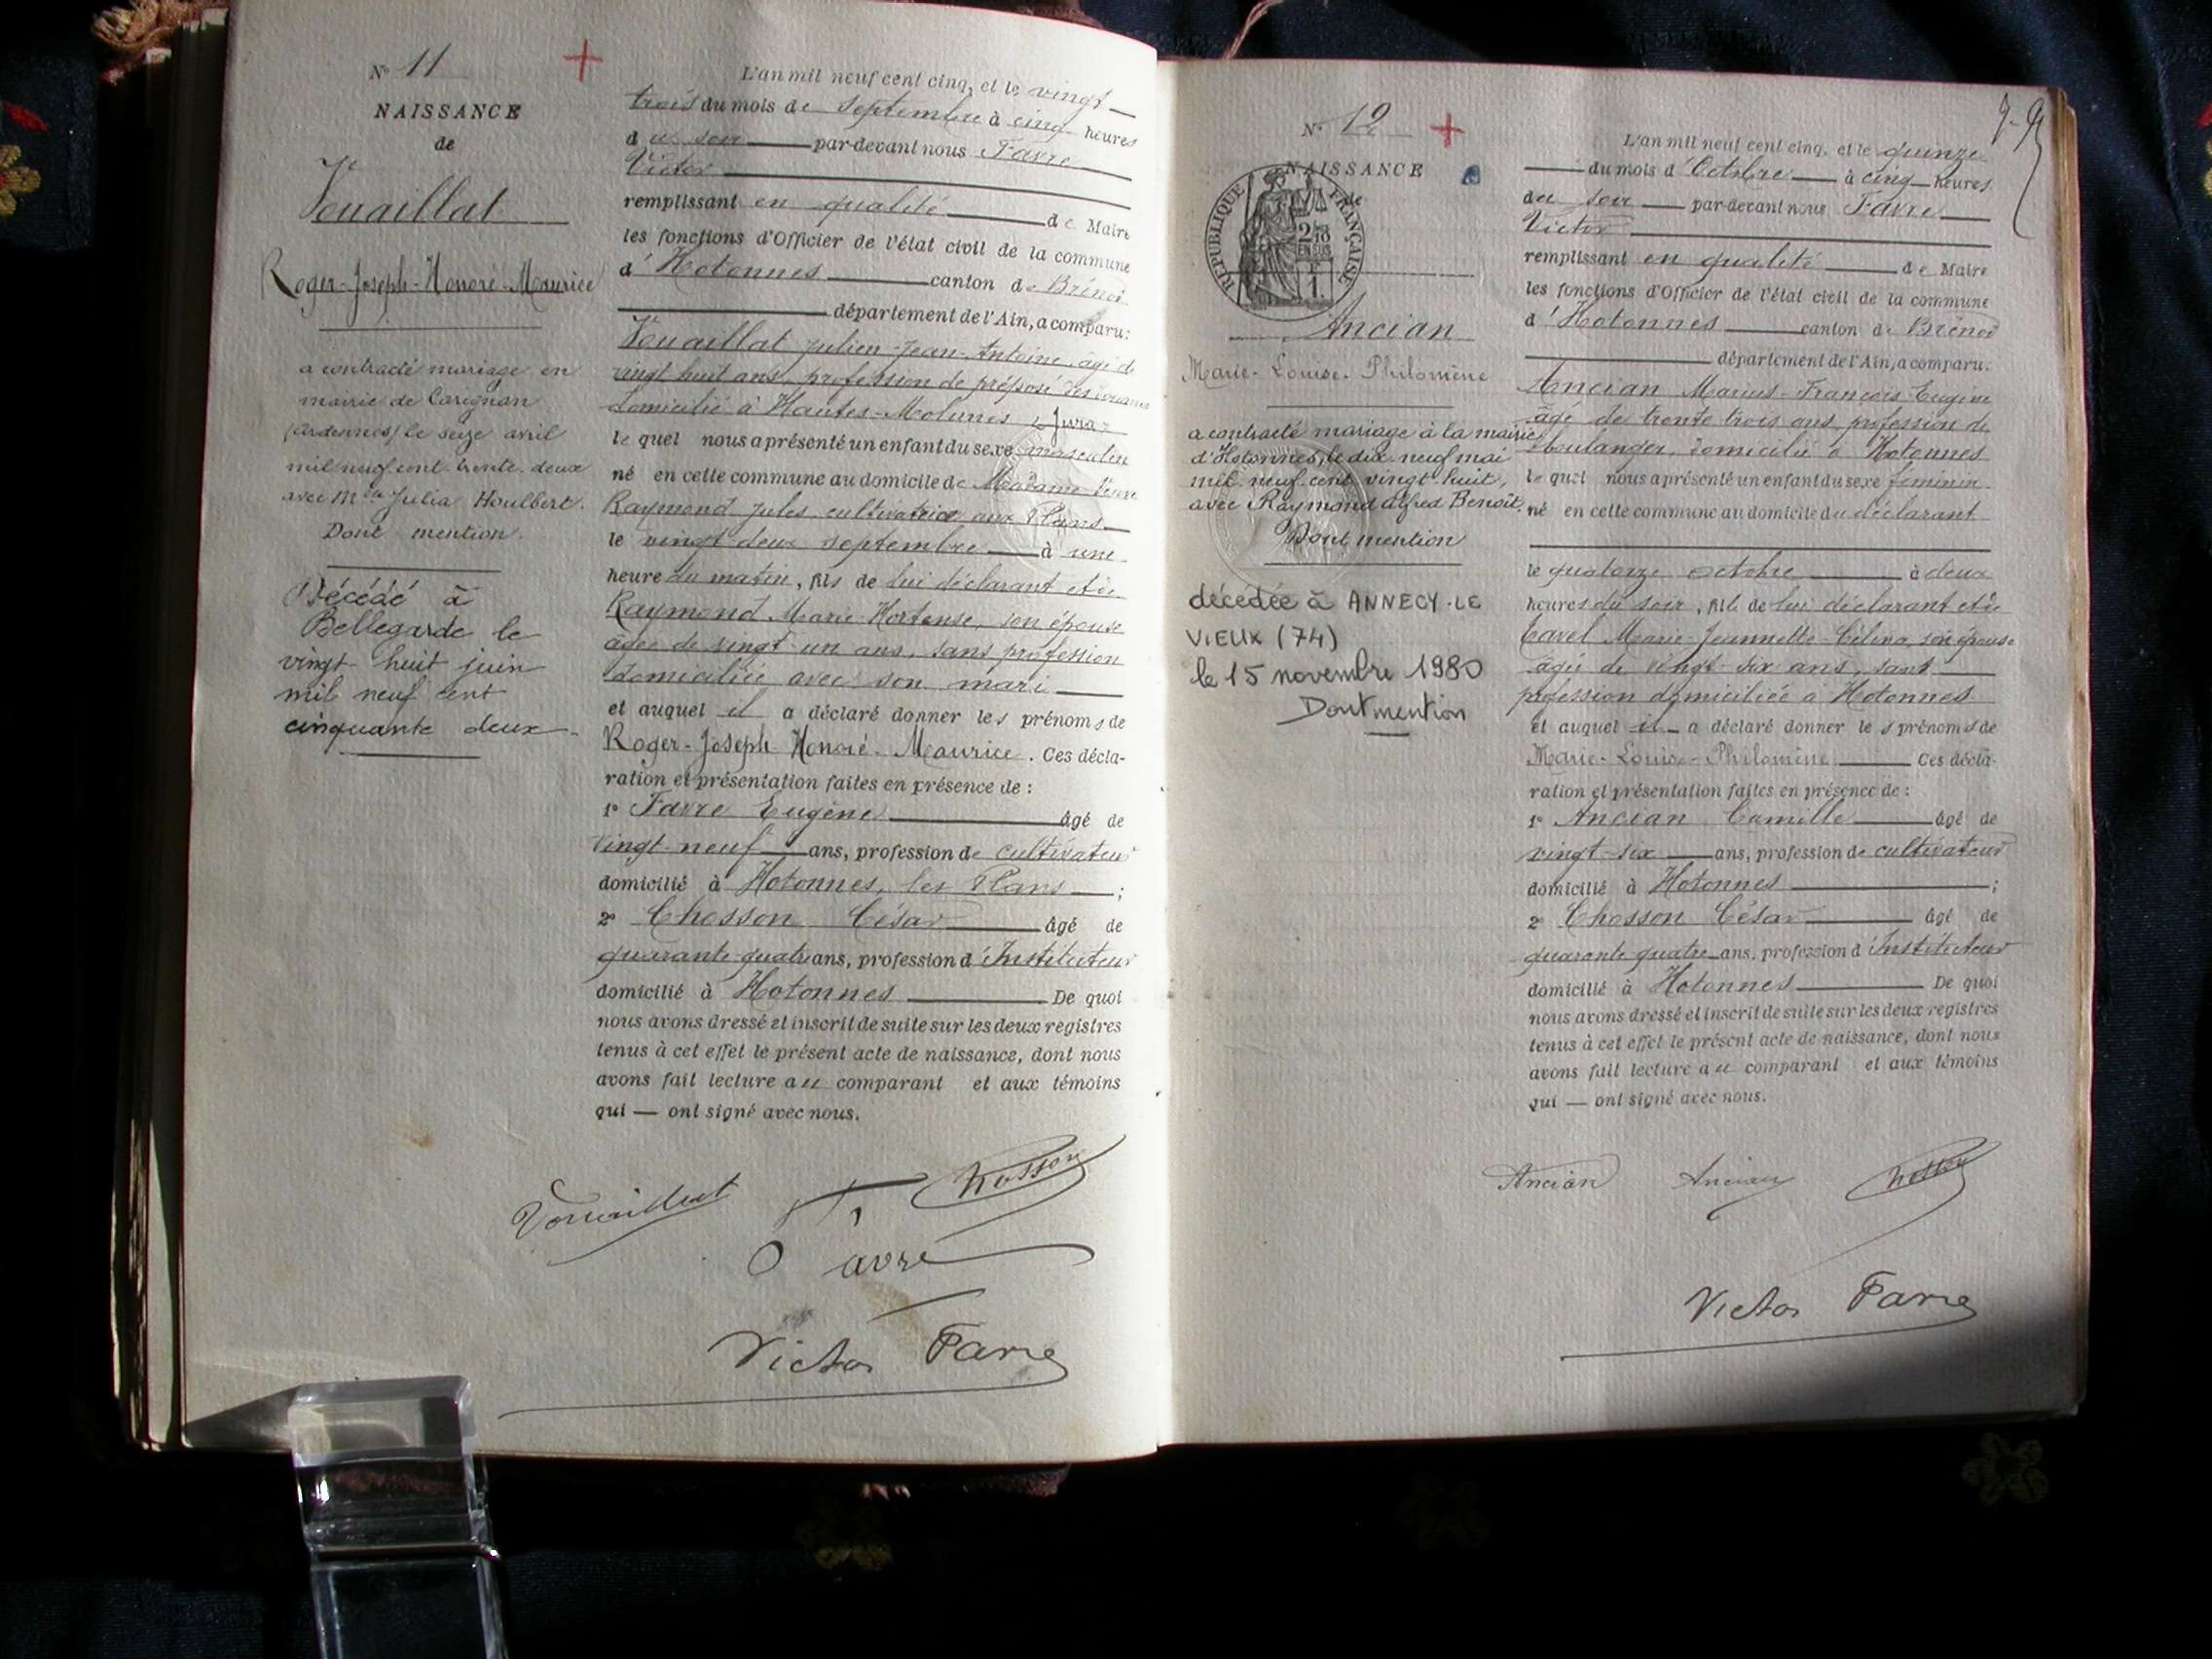 N° 11
NAISSANCE
de
Vouaillat
Roger-Joseph-Honoré-Maurice
a contracté mariage en
mairie de Carignan
(Ardennes) le seize avril
mil neuf cent trente-deux
avec Mlle Julia Houlbert.
Dont mention.
Décédé à
Bellegarde le
vingt huit juin
mil neuf cent
cinquante deux.
L'an mil neuf cent cinq, et le vingt
trois du mois de septembre à cinq heures
du soir par-devant nous Favre
Victor
remplissant en qualité de Maire
les fonctions d'Officier de l'état civil de la commune
d'Hotonnes canton de Brénod
département de l'Ain, a comparu:
Vouaillat Julien-Jean-Antoine, âgé de
vingt huit ans, profession de préposé des douanes
domicilié à Hautes-Molunes Jura
lequel nous a présenté un enfant du sexe masculin
né en cette commune au domicile de Madame Veuve
Raymond Jules, cultivatrice aux Plans
le vingt-deux septembre à une
heure du matin, fils de lui déclarant et de
Raymond Marie-Hortense, son épouse
âgée de vingt-un ans, sans profession
domiciliée avec son mari
et auquel il a déclaré donner les prénoms de
Roger-Joseph-Honoré-Maurice. Ces décla-
ration et présentation faites en présence de :
1° Favre Eugène âgé de
vingt-neuf ans, profession de cultivateur
domicilié à Hotonnes, les Plans ;
2° Chosson César âgé de
quarante-quatre ans, profession d'Instituteur
domicilié à Hotonnes De quoi
nous avons dressé et inscrit de suite sur les deux registres
tenus à cet effet le présent acte de naissance, dont nous
avons fait lecture au comparant et aux témoins
qui — ont signé avec nous.
Vouaillat Chosson
Favre
Victor Favre
N° 12
NAISSANCE
de
RÉPUBLIQUE FRANÇAISE
EN SUS
Ancian
Marie-Louise-Philomène
a contracté mariage à la mairie
d'Hotonnes, le dix-neuf mai
mil-neuf-cent vingt huit,
avec Raymond Alfred Benoît.
Dont mention
décédée à ANNECY-LE
VIEUX (74)
le 15 novembre 1980
Dont mention
L'an mil neuf cent cinq, et le quinze
du mois d'Octobre à cinq heures
du soir par-devant nous Favre
Victor
remplissant en qualité de Maire
les fonctions d'Officier de l'état civil de la commune
d'Hotonnes canton de Brénod
département de l'Ain, a comparu.
Ancian Marius-François-Eugène
âgé de trente trois ans, profession de
boulanger, domicilié à Hotonnes
lequel nous a présenté un enfant du sexe féminin
né en cette commune au domicile du déclarant
le quatorze octobre à deux
heures du soir, fils de lui déclarant et de
Marie-Jeannette son épouse
âgée de vingt-six ans, sans
profession domiciliée à Hotonnes
et auquel il a déclaré donner les prénoms de
Marie-Louise-Philomène Ces décla-
ration et présentation faites en présence de :
1° Ancian Camille âgé de
vingt-six ans, profession de cultivateur
domicilié à Hotonnes ;
2° Chosson César âgé de
quarante quatre ans, profession d'Instituteur
domicilié à Hotonnes De quoi
nous avons dressé et inscrit de suite sur les deux registres
tenus à cet effet le présent acte de naissance, dont nous
avons fait lecture au comparant et aux témoins
qui — ont signé avec nous.
Ancian Ancian Chosson
Victor Favre